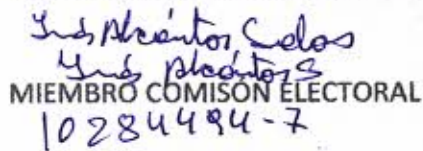 Inés Alcántar
Inés Alcántar S
MIEMBRO COMISÓN ELECTORAL
10284494-7